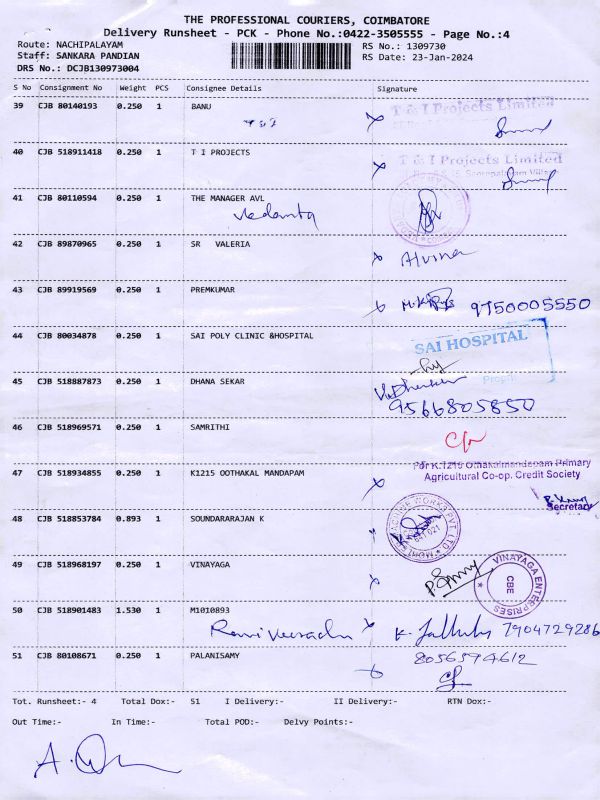 THE PROFESSIONAL COURIERS, COIMBATORE
Delivery Runsheet - PCK - Phone No.:0422-3505555 - Page No.:4
Route: NACHIPALAYAM RS No.: 1309730
Staff: SANKARA PANDIAN RS Date: 23-Jan-2024
DRS No.: DCJB130973004
S No Consignment No Weight PCS Consignee Details Signature
39 CJB 80140193 0.250 1 BANU T & I Projects Limited
40 CJB 518911418 0.250 1 T I PROJECTS T & I Projects Limited
41 CJB 80110594 0.250 1 THE MANAGER AVL
Vedanta
42 CJB 89870965 0.250 1 SR VALERIA
43 CJB 89919569 0.250 1 PREMKUMAR 9750005550
44 CJB 80034878 0.250 1 SAI POLY CLINIC &HOSPITAL SAI HOSPITAL
45 CJB 518887873 0.250 1 DHANA SEKAR
9566805850
46 CJB 518969571 0.250 1 SAMRITHI
For K.1215 Oothakalmandapam Primary
47 CJB 518934855 0.250 1 K1215 OOTHAKAL MANDAPAM Agricultural Co-op. Credit Society
Secretary
48 CJB 518853784 0.893 1 SOUNDARARAJAN K
49 CJB 518968197 0.250 1 VINAYAGA VINAYAGA ENTERPRISES CBE
50 CJB 518901483 1.530 1 M1010893
7904729286
51 CJB 80108671 0.250 1 PALANISAMY 8056594612
Tot. Runsheet:- 4 Total Dox:- 51 I Delivery:- II Delivery:- RTN Dox:-
Out Time:- In Time:- Total POD:- Delvy Points:-